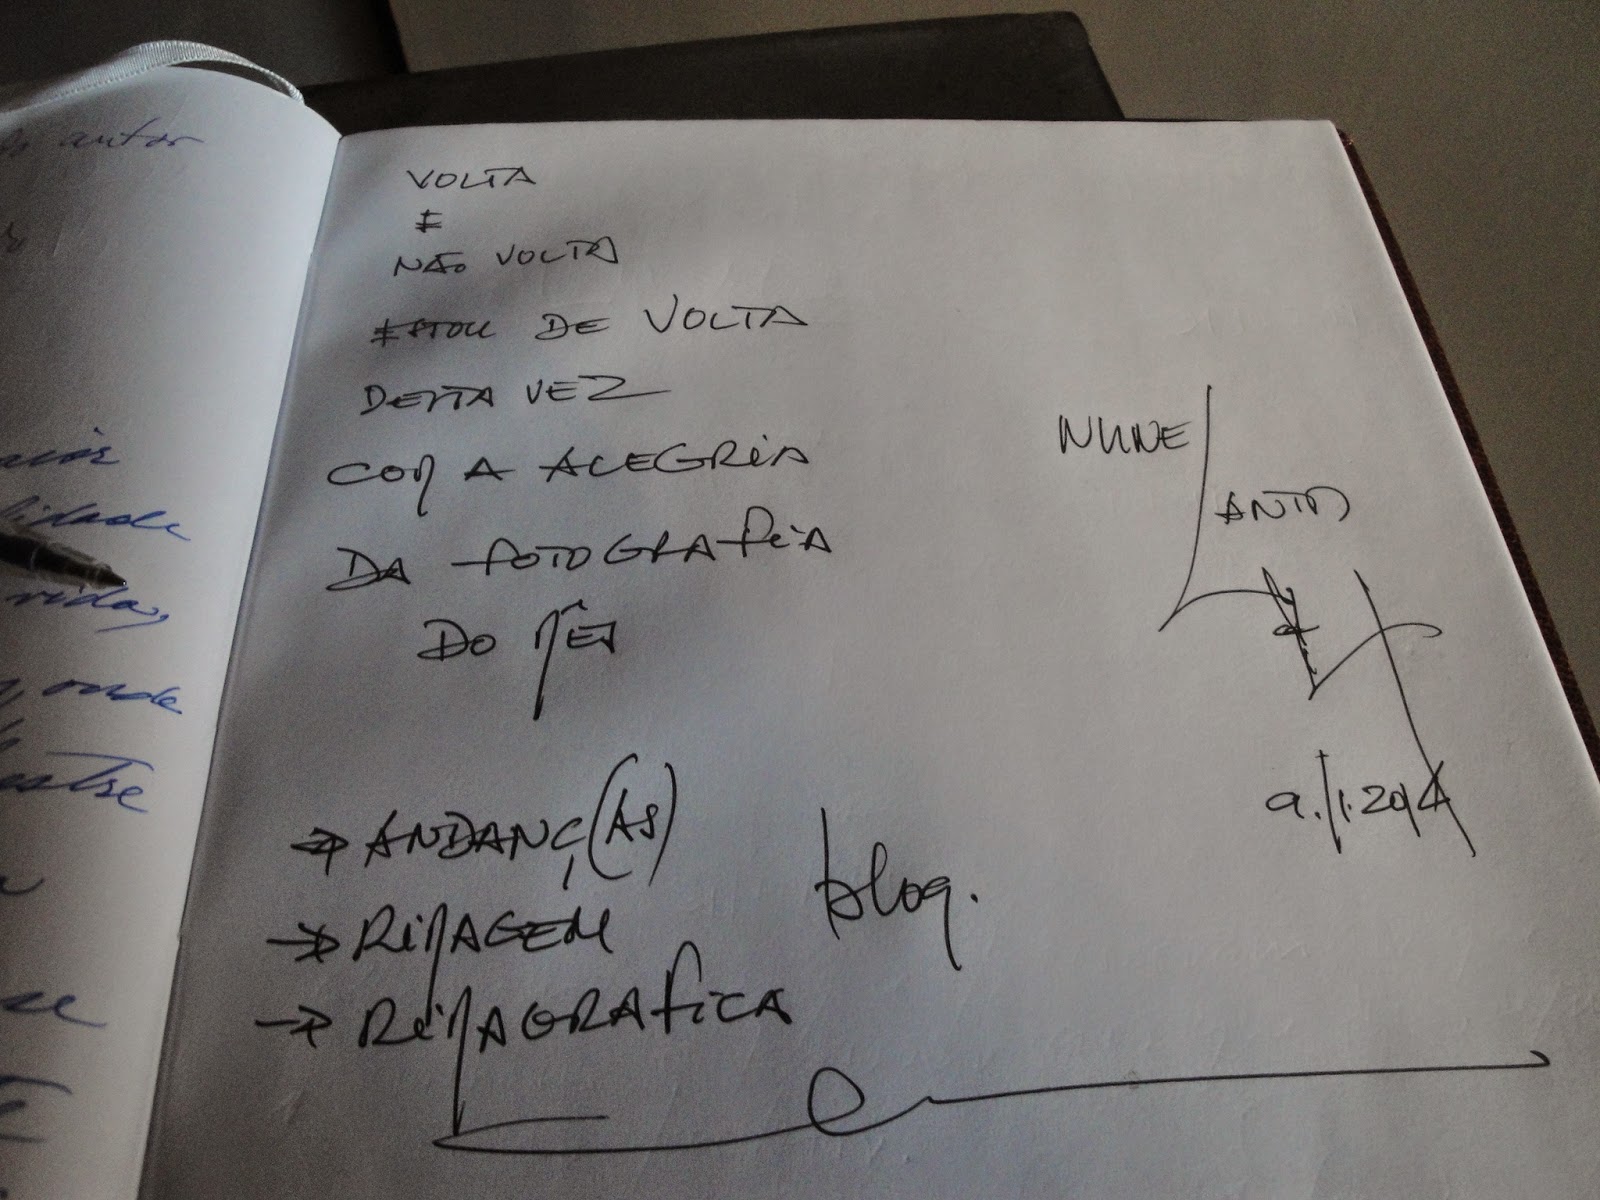 autor
lidade
vida,
onde
estre
se
VOLTA
E
NÃO VOLTA
ESTOU DE VOLTA
DESTA VEZ
COM A ALEGRIA
DA FOTOGRAFIA
DO MÊS
NUNE
SANTOS
9.1.2014
→ ANDANÇ(AS)
→ RIMAGEM
→ RIMAGRAFICA
blog.